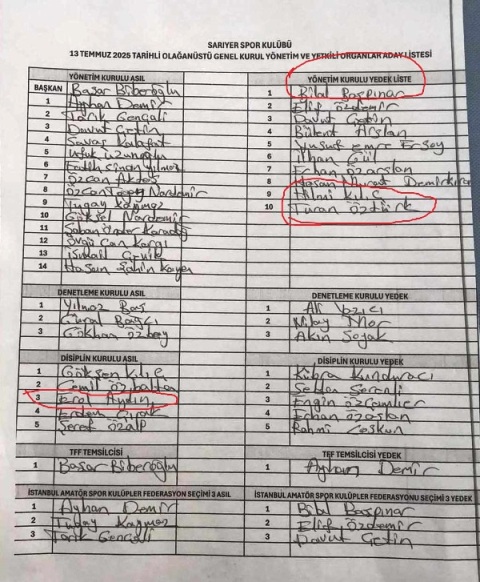 SARIYER SPOR KULÜBÜ
13 TEMMUZ 2025 TARİHLİ OLAĞANÜSTÜ GENEL KURUL YÖNETİM VE YETKİLİ ORGANLAR ADAY LİSTESİ
YÖNETİM KURULU ASIL
BAŞKAN Başar Biberoğlu
1 Ayhan Demir
2 Tarık Gençali
3 Davut Çetin
4 Savaş Kalafat
5 Ufuk Uzunoğlu
6 Fatih Sinan Yılmaz
7 Özcan Aktaş
8 Nardemir
9 Tugay Kaymaz
10 Göksel Nardemir
11 Şaban Önder Karadağ
12 Can Kargı
13 İsmail
14 Hasan Şahin Kaya
YÖNETİM KURULU YEDEK LİSTE
1 Bilal Başpınar
2 Elif Özdemir
3 Davut Çetin
4 Bülent Arslan
5 Yusuf Emre Ersoy
6 İlhan Gül
7 Erhan Özarslan
8 Hasan Murat Demirkıran
9 Hilmi Kılıç
10 Turan Öztürk
DENETLEME KURULU ASIL
1 Yılmaz Baş
2 Gürol Bağcı
3 Gökhan Özbey
DENETLEME KURULU YEDEK
1 Ali Yazıcı
2 Nilay Mor
3 Akın Soyak
DİSİPLİN KURULU ASIL
1 Gökşen Kılıç
2 Cemil Özbalta
3 Erol Aydın
4 Erdem Çırak
5 Şeref Özalp
DİSİPLİN KURULU YEDEK
1 Kübra Kunduracı
2 Selda Serenli
3 Engin Özçamlıer
4 Erhan Özaslan
5 Rahmi Coşkun
TFF TEMSİLCİSİ
1 Başar Biberoğlu
TFF TEMSİLCİSİ YEDEK
1 Ayhan Demir
İSTANBUL AMATÖR SPOR KULÜPLER FEDERASYON SEÇİMİ 3 ASIL
1 Ayhan Demir
2 Tugay Kaymaz
3 Tarık Gençali
İSTANBUL AMATÖR SPOR KULÜPLER FEDERASYONU SEÇİMİ 3 YEDEK
1 Bilal Başpınar
2 Elif Özdemir
3 Davut Çetin